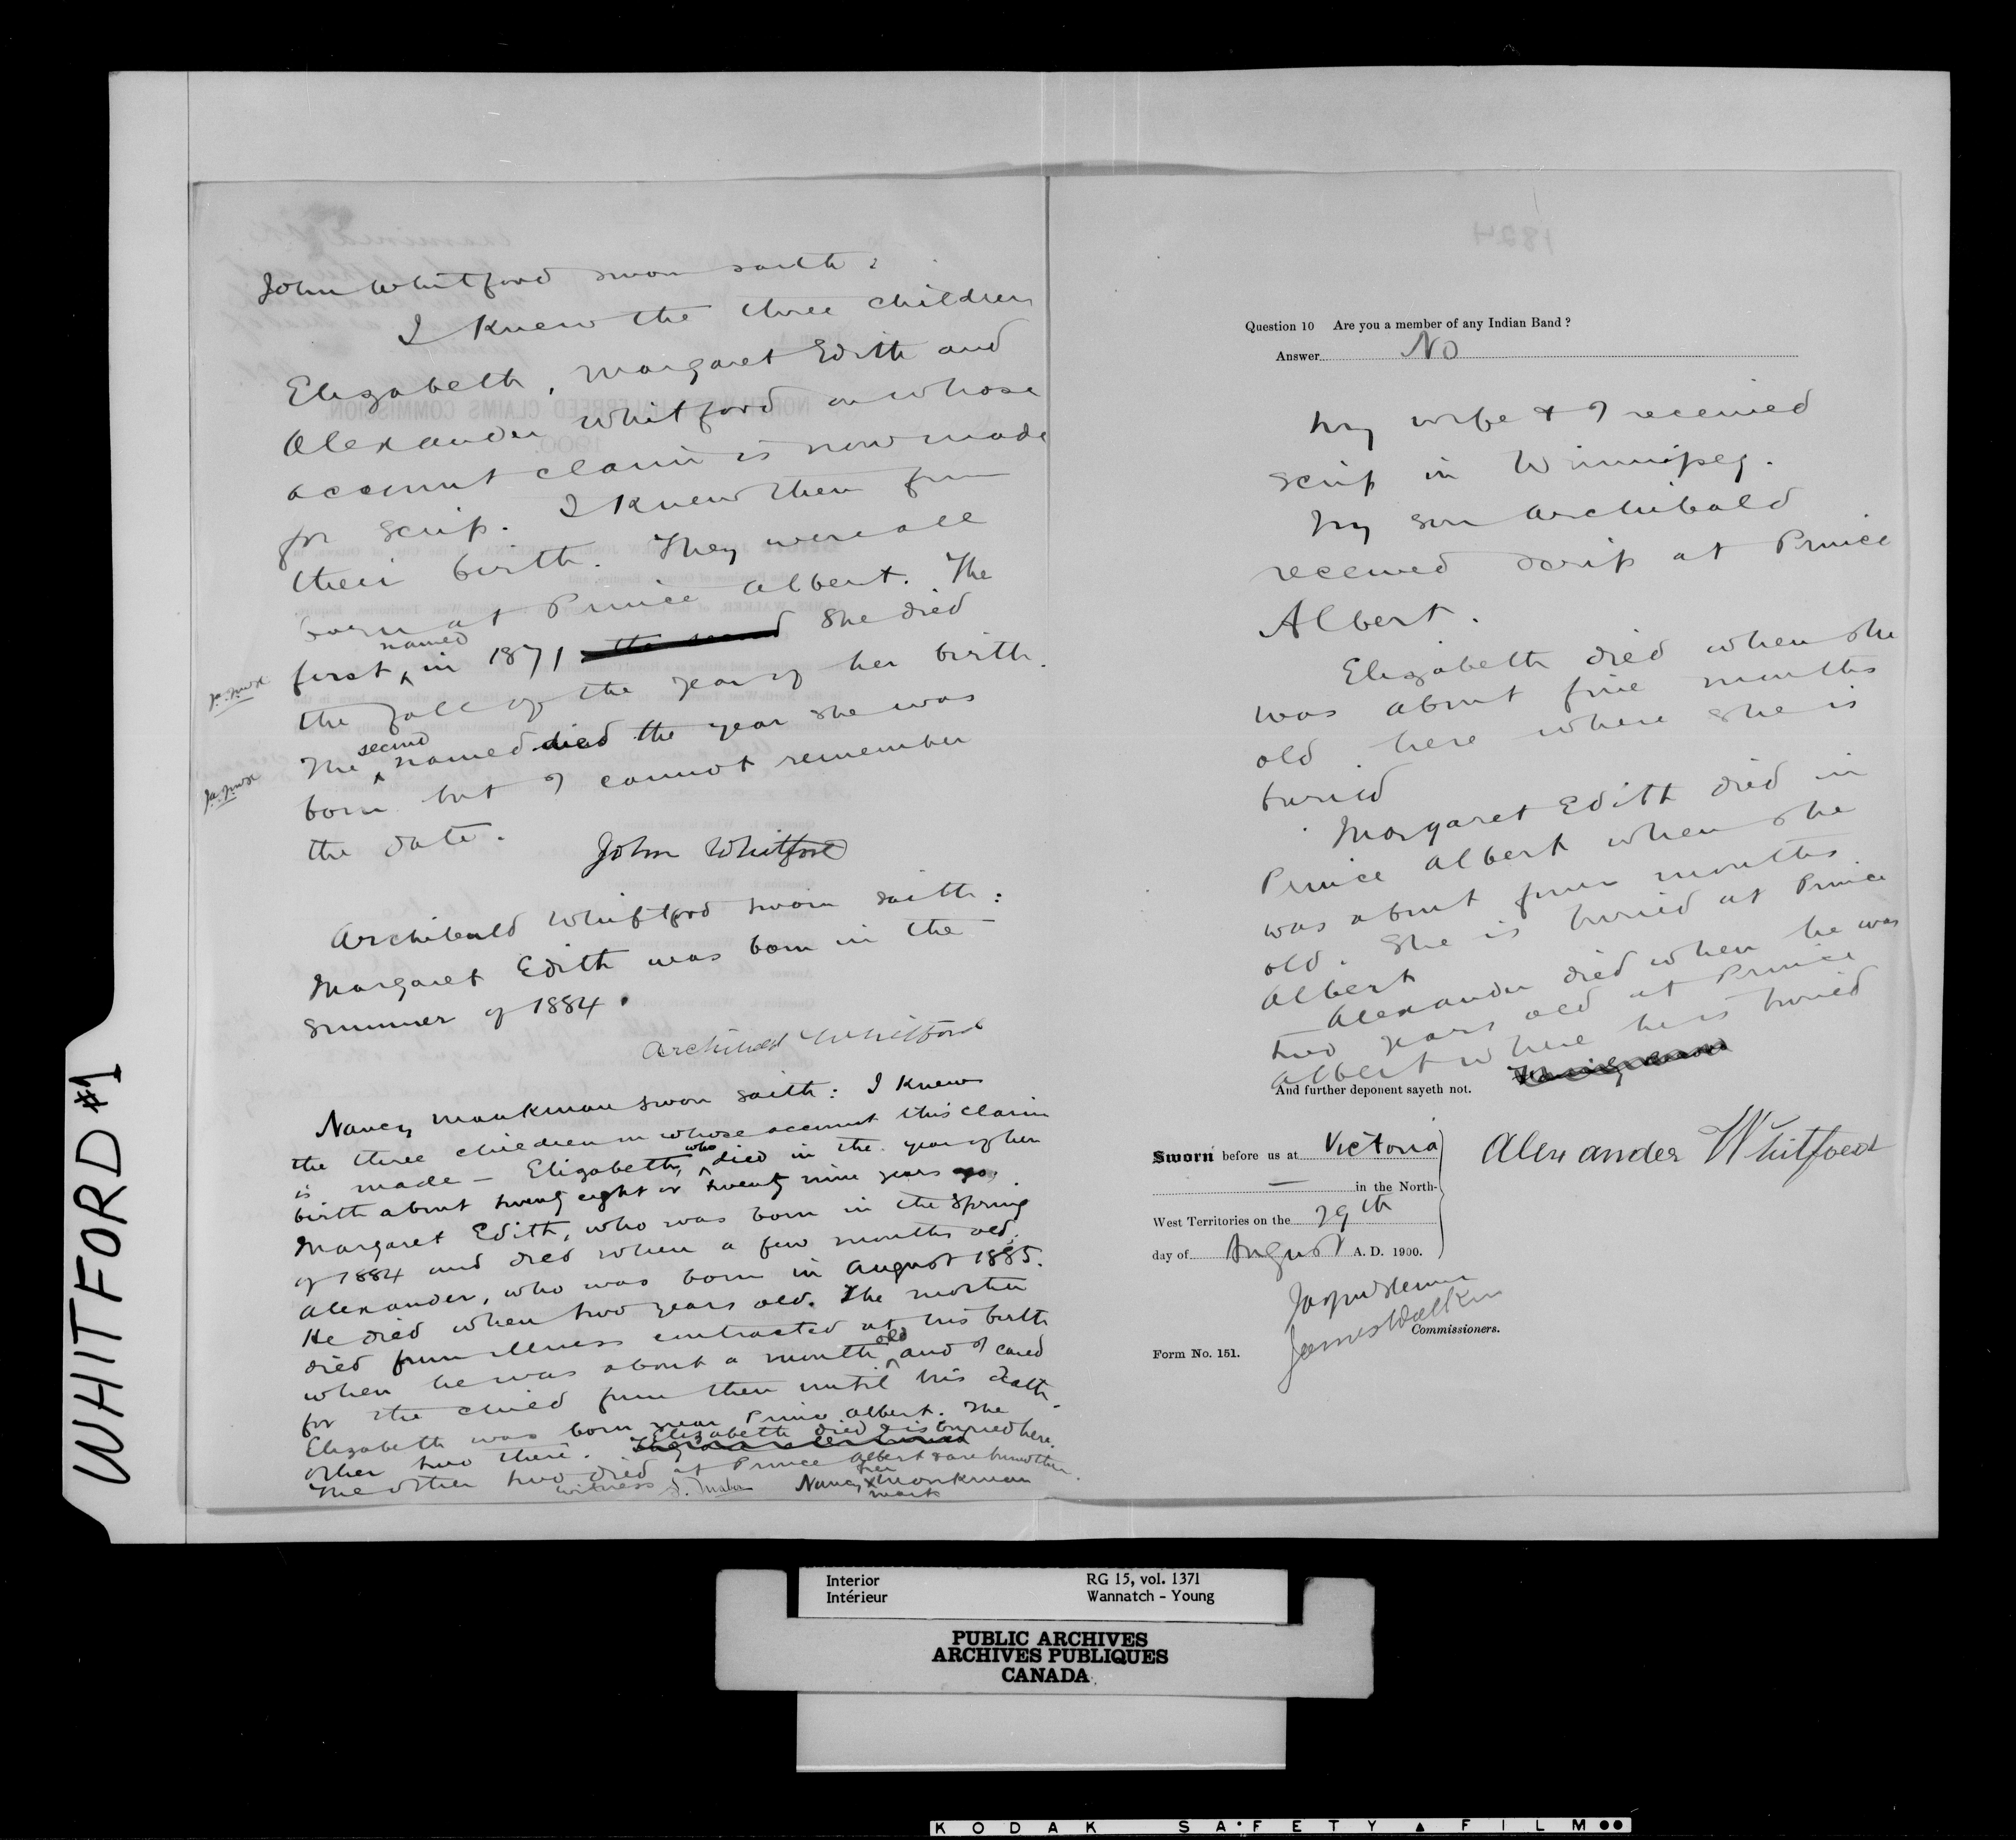 John Whitford sworn saith:
I knew the three children
Elizabeth, Margaret Edith and
Alexander Whitford on whose
account claim is now made
for scrip. I knew them from
their birth. They were all
born at Prince Albert. The
first named in 1871 the second She died
the fall of the year of her birth.
The second named died the year she was
born but I cannot remember
the date.
John Whitford
Archibald Whitford sworn saith:
Margaret Edith was born in the
summer of 1884.
Archibald Whitford
Nancy Monkman sworn saith: I knew
the three children on whose account this claim
is made – Elizabeth, who died in the year of her
birth about twenty eight or twenty nine years ago,
Margaret Edith, who was born in the Spring
of 1884 and died when a few months old,
Alexander, who was born in August 1885.
He died when two years old. The mother
died from illness contracted at his birth
when he was about a month old and I cared
for the child from then until his death.
Elizabeth was born near Prince Albert. The
other two there. Elizabeth died & is buried here.
The other two died at Prince Albert & are buried there.
witness
Nancy X Monkman
her
mark
1824
Question 10 Are you a member of any Indian Band ?
Answer No
My wife & I received
scrip in Winnipeg.
My son Archibald
received scrip at Prince
Albert.
Elizabeth died when she
was about five months
old here where she is
buried
Margaret Edith died in
Prince Albert when she
was about four months
old. She is buried at Prince
Albert
Alexander died when he was
two years old at Prince
Albert where he is buried
And further deponent sayeth not.
Sworn before us at Victoria
in the North-
West Territories on the 29th
day of August A. D. 1900.
Alexander Whitford
James Walker
Commissioners.
Form No. 151.
WHITFORD #1
Interior RG 15, vol. 1371
Intérieur Wannatch - Young
PUBLIC ARCHIVES
ARCHIVES PUBLIQUES
CANADA
KODAK SAFETY FILM